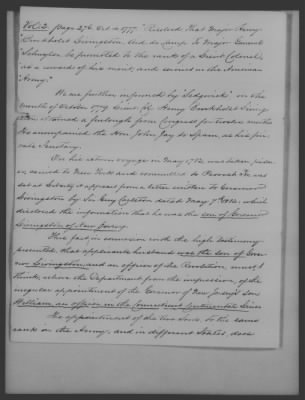 Vol. 2. page 276. Oct. 4. 1777 "Resolved That Major Henry
"Brockholst Livingston Aid de Camp to Major General
"Schuyler, be promoted to the rank of a Lieut Colonel,
"as a reward of his merit, and services in the American
"Army."
We are further informed by "Sedgwick" in the
month of October 1779 Lieut. Col. Henry Brockholst Living-
ston obtained a furlough from Congress for twelve months
He accompanied the Hon. John Jay to Spain, as his pri-
vate Secretary.
On his return voyage in May 1782, was taken prison-
er, carried to New York and committed to Provost He was
set at Liberty it appears from a letter written to Governor
Livingston by Sir Guy Carleton dated May 7th 1782. which
disclosed the information that he was the son of Governor
Livingston of New Jersey.
This fact in connexion with the high testimony
presented that applicants husband was the son of Gov-
nor Livingston and an officer of the Revolution, must I
think, relieve the Department from the impression, of the
irregular appointment of the Governor of New Jersey's son
William, an officer in the Connecticut
The appointment of the two Sons, to the same
rank in the Army, and in different States, does